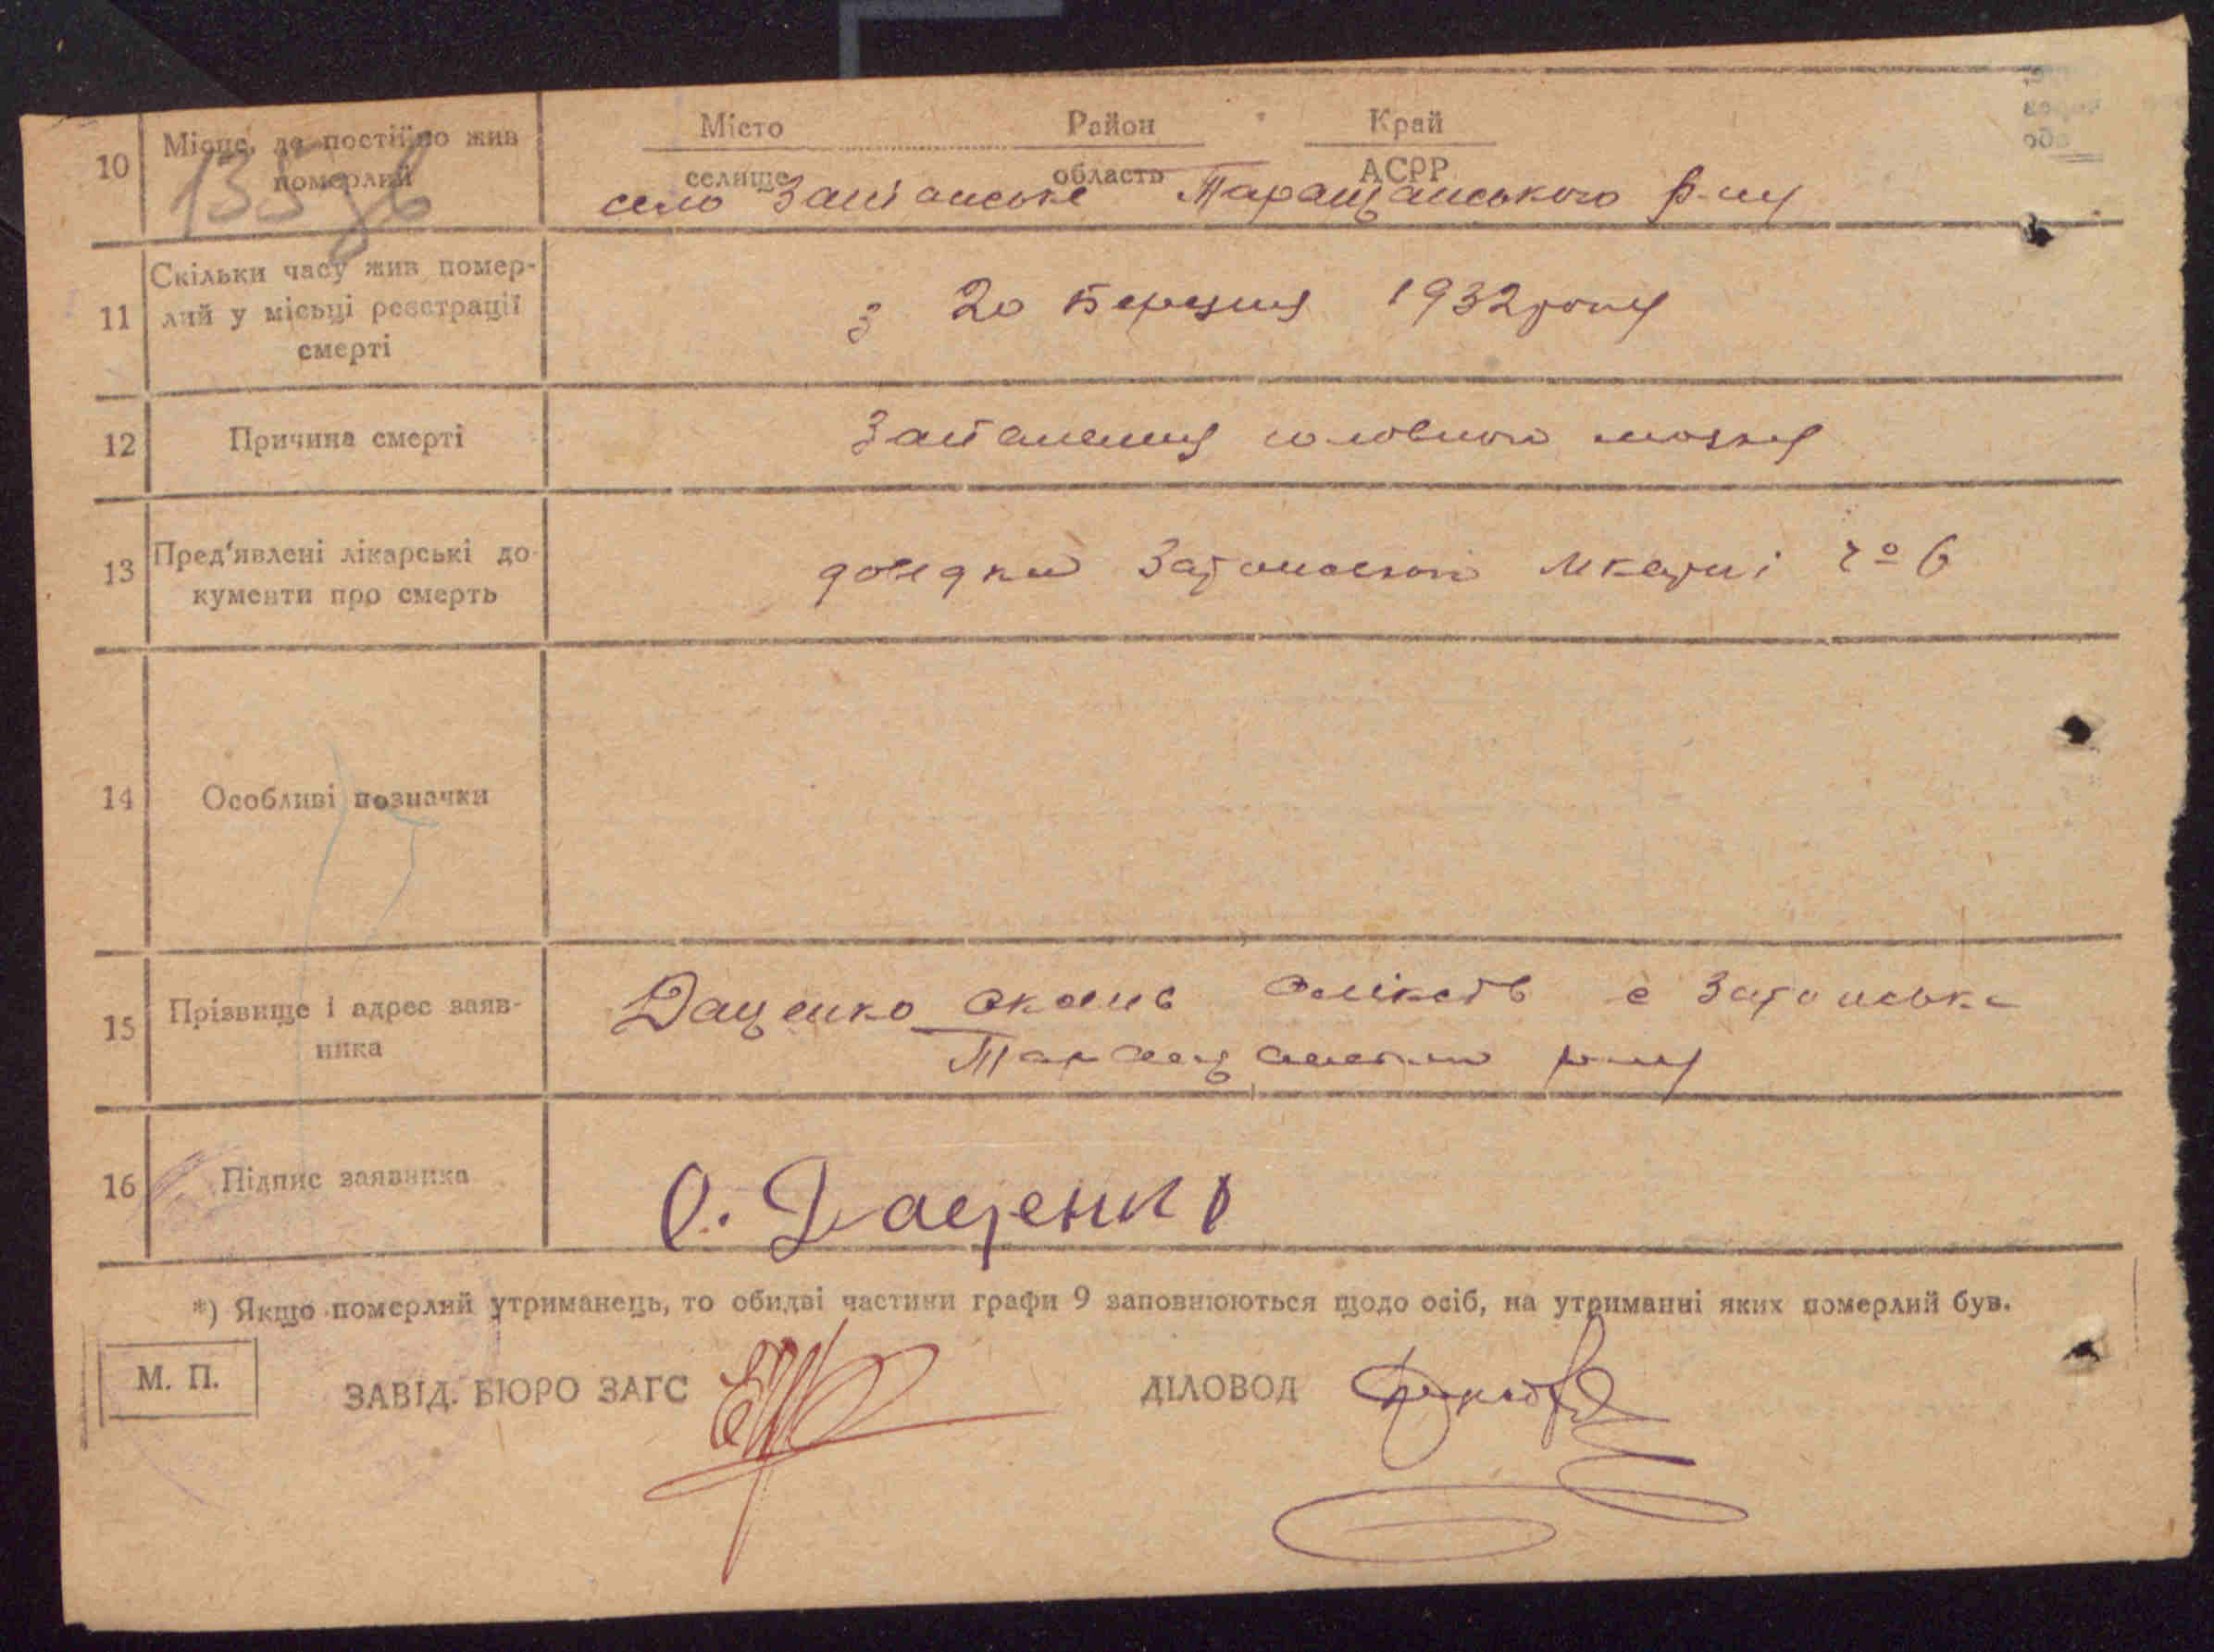 Місто Район Край
10 Місце, де постійно жив
померлий
селище область АСРР
135 зв
село Таращанського р-ну
11 Скільки часу жив помер-
лий у місьці реєстрації
смерті
з 20 Березня 1932 року
12 Причина смерті
Запалення головного мозку
13 Пред'явлені лікарські до-
кументи про смерть
довідка лікарні 6
14 Особливі позначки
15 Прізвище і адрес заяв-
ника
Даценко с
Таращанського р-ну
16 Підпис заявника
О. Даценко
*) Якщо померлий утриманець, то обидві частини графи 9 заповнюються щодо осіб, на утриманні яких померлий був.
М. П.
ЗАВІД. БЮРО ЗАГС ДІЛОВОД